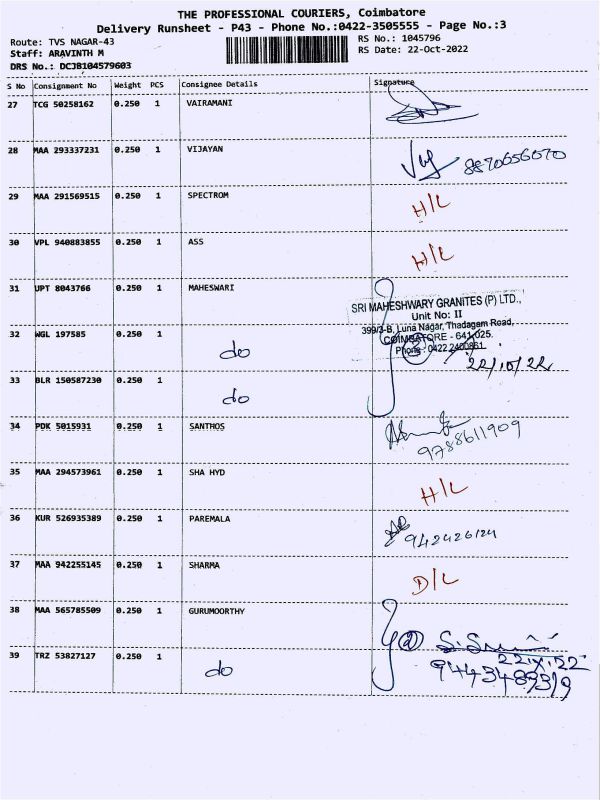 THE PROFESSIONAL COURIERS, Coimbatore
Delivery Runsheet - P43 - Phone No.:0422-3505555 - Page No.:3
Route: TVS NAGAR-43 RS No.: 1045796
Staff: ARAVINTH M RS Date: 22-Oct-2022
DRS No.: DCJB104579603
S No Consignment No Weight PCS Consignee Details Signature
27 TCG 50258162 0.250 1 VAIRAMANI
28 MAA 293337231 0.250 1 VIJAYAN 8870656070
29 MAA 291569515 0.250 1 SPECTROM H/L
30 VPL 940883855 0.250 1 ASS H/L
31 UPT 8043766 0.250 1 MAHESWARI
SRI MAHESHWARY GRANITES (P) LTD.,
Unit No: II
399/3-B, Luna Nagar, Thadagam Road,
COIMBATORE - 641 025.
Phone : 0422 2400861
32 WGL 197585 0.250 1 do
22/10/22
33 BLR 150587230 0.250 1 do
34 PDK 5015931 0.250 1 SANTHOS
9788611909
35 MAA 294573961 0.250 1 SHA HYD H/L
36 KUR 526935389 0.250 1 PAREMALA
942426124
37 MAA 942255145 0.250 1 SHARMA D/L
38 MAA 565785509 0.250 1 GURUMOORTHY
39 TRZ 53827127 0.250 1 do
22.X.22